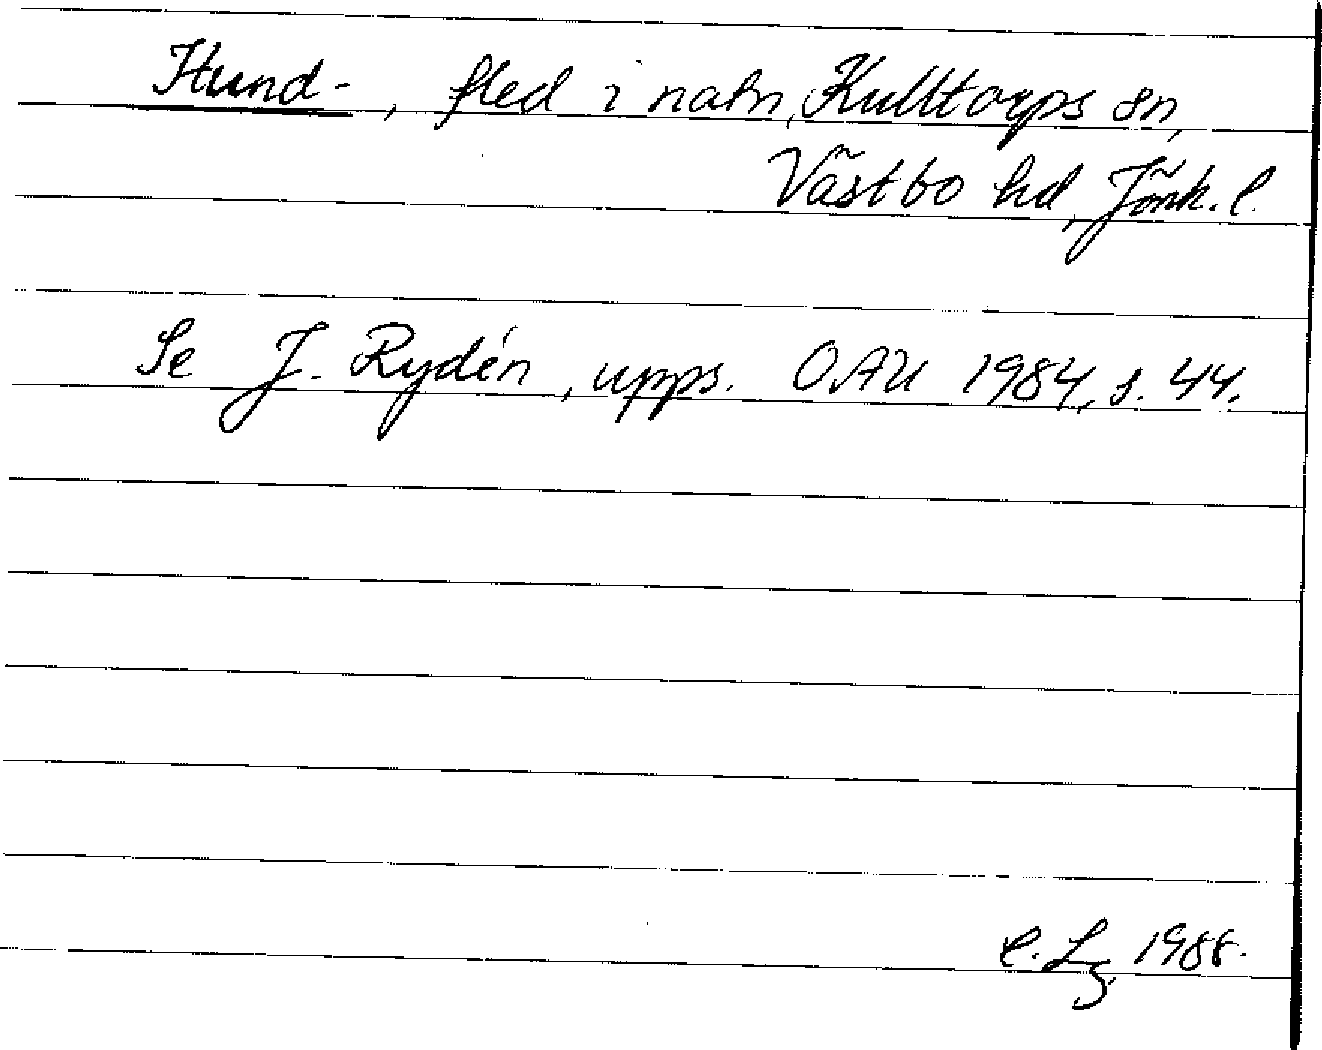 Hund-, fled i natn, Kulltorps sn,
Västbo hd, Jönk. l.
Se J. Rydén, upps. OAU 1984, s. 44.
C. Lg. 1988.